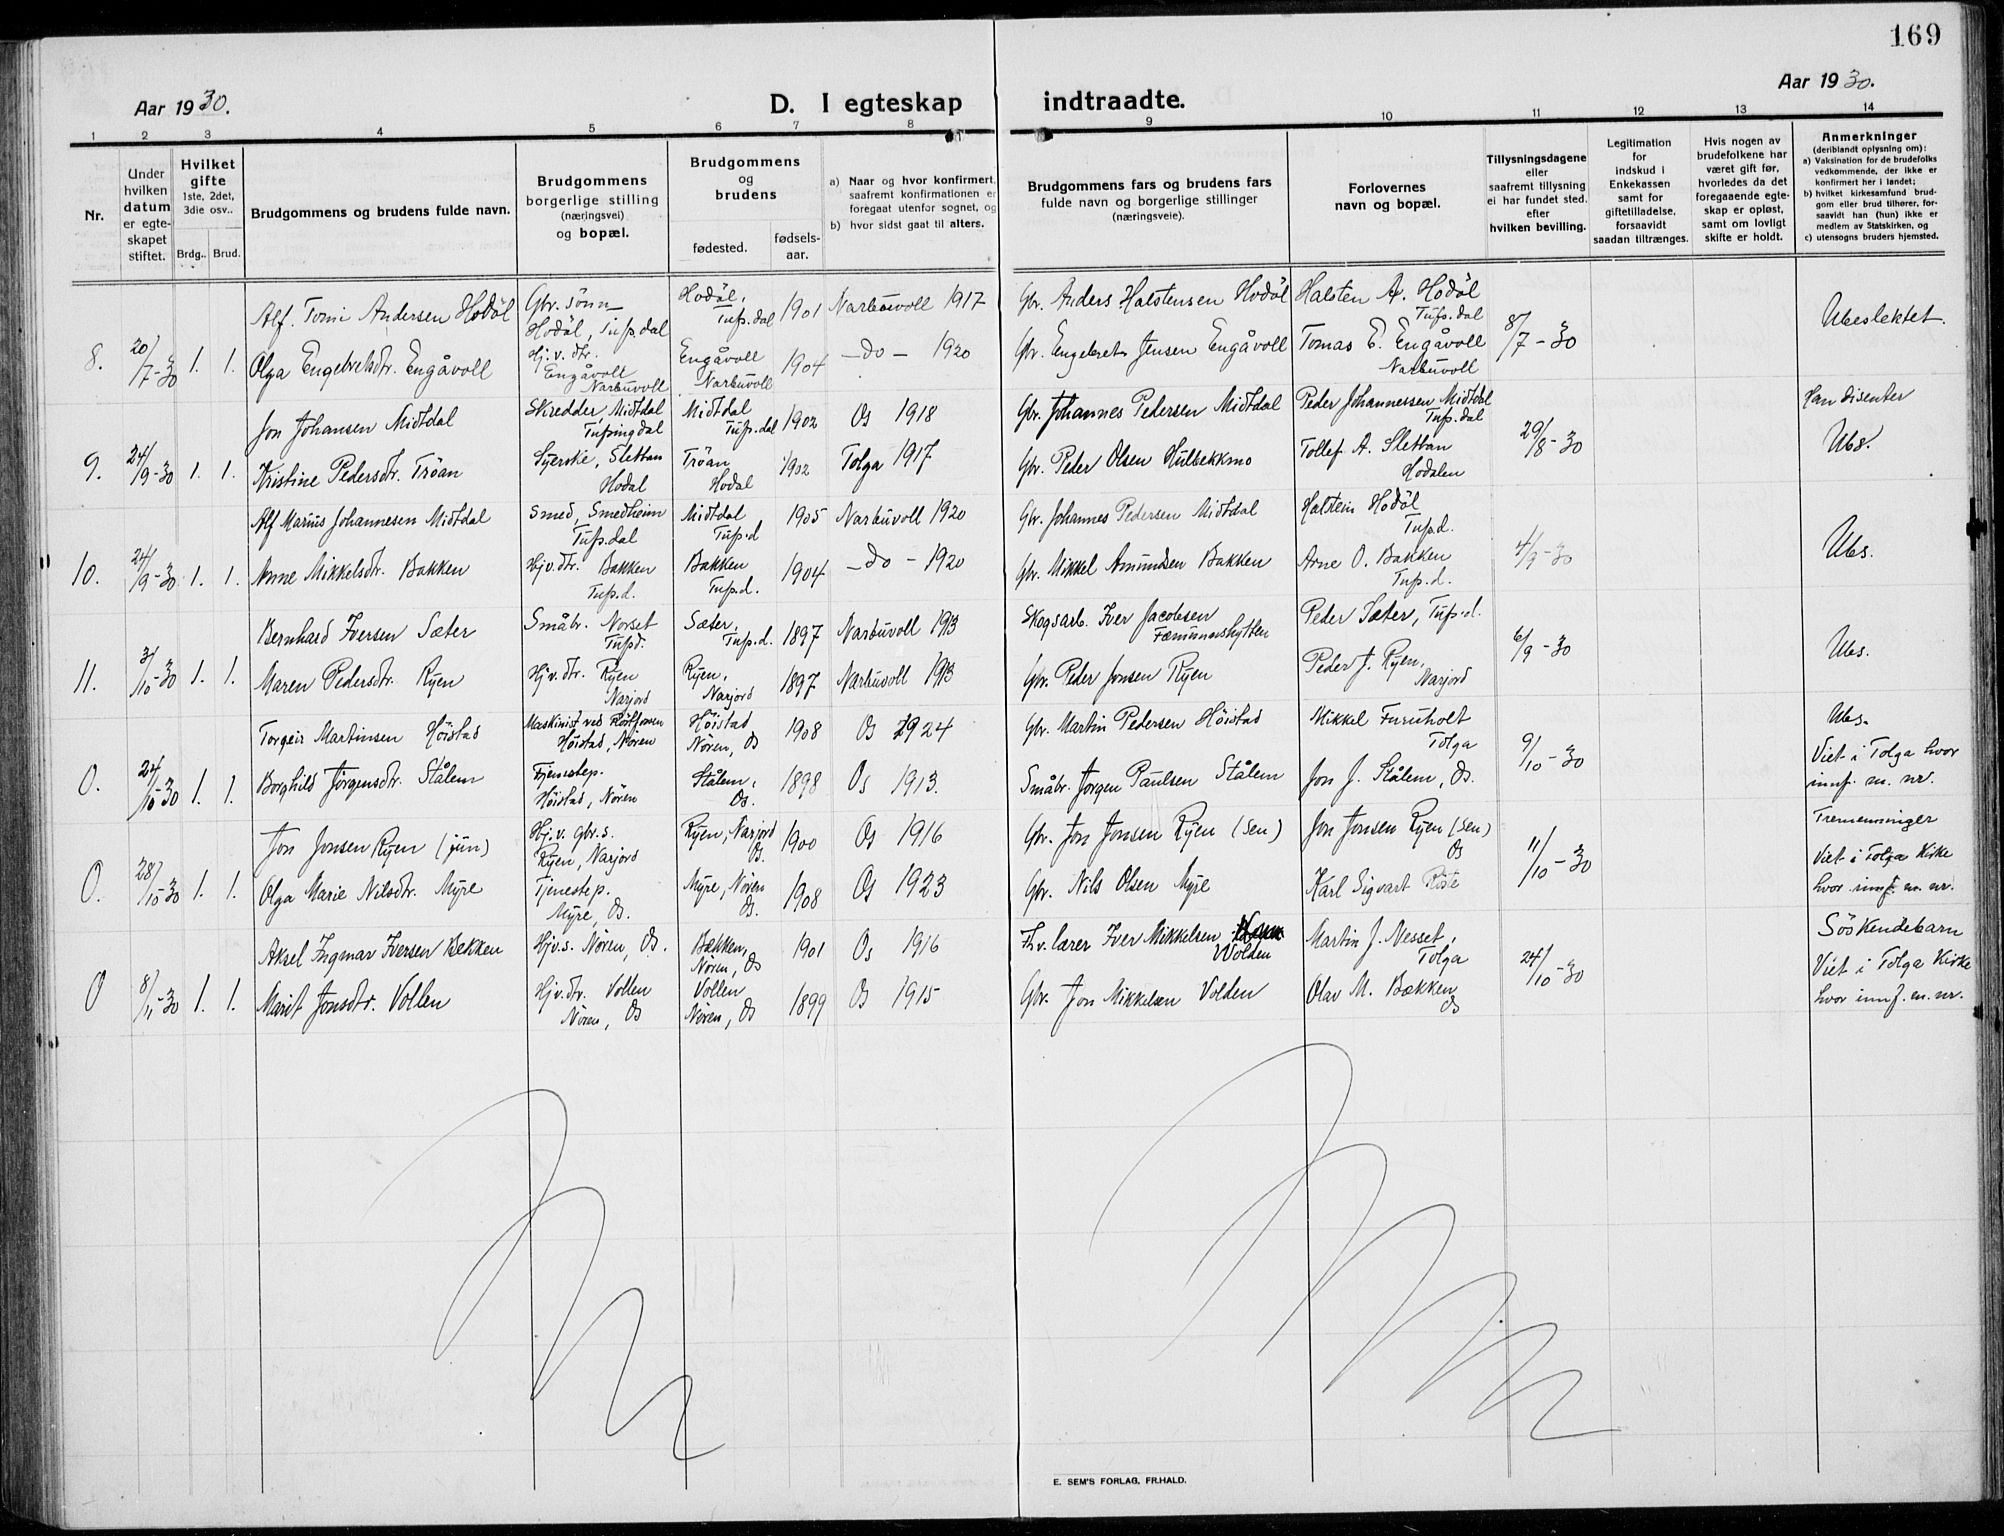 169
Aar 1930.
D. I egteskap indtraadte.
Aar 1930.
1 2 3 4 5 6 7 8 9 10 11 12 13 14
Nr.
Under hvilken datum er egteskapet stiftet.
Hvilket gifte 1ste, 2det, 3die osv..
Brdg.. Brud.
Brudgommens og brudens fulde navn.
Brudgommens borgerlige stilling (næringsvei) og bopæl.
Brudgommens og brudens
fødested. fødselsaar.
a) Naar og hvor konfirmert, saafremt konfirmationen er foregaat utenfor sognet, og
b) hvor sidst gaat til alters.
Brudgommens fars og brudens fars fulde navn og borgerlige stillinger (næringsveie).
Forlovernes navn og bopæl.
Tillysningsdagene eller saafremt tillysning ei har fundet sted. efter hvilken bevilling.
Legitimation for indskud i Enkekassen samt for giftetilladelse, forsaavidt saadan tiltrænges.
Hvis nogen av brudefolkene har været gift før, hvorledes da det foregaaende egteskap er opløst, samt om lovligt skifte er holdt.
Anmerkninger (deriblandt oplysning om):
a) Vaksination for de brudefolks vedkommende, der ikke er konfirmert her i landet;
b) hvilket kirkesamfund brudgom eller brud tilhører, forsaavidt han (hun) ikke er medlem av Statskirken, og
c) utensogns bruders hjemsted.
Alf. Tomi Andersen Hodöl Gbr. sönn Hodöl, Tufs.dal Hodöl, Tufs.dal 1901 Narbuvoll 1917 Gbr. Anders Halstensen Hodöl Halsten A. Hodöl Tufs.dal Ubeslektet.
8. 20/7-30 1. 1. Olga Engebretsdtr. Engåvoll Hj.v. dtr. Engåvoll Narbuvoll Engåvoll Narbuvoll 1904 -do- 1920 Gbr. Engebret Jensen Engåvoll Tomas E. Engåvoll Narbuvoll 8/7-30
Jon Johansen Midtdal Skredder, Midtdal Tufsingdal Midtdal Tufs.dal 1902 Os 1918 Gbr. Johannes Pedersen Midtdal Peder Johannessen Midtdal Tufs.dal Han disenter
9. 24/9-30 1. 1. Kristine Pedersdtr. Tröan Syerske, Slettan Hodal Tröan Hodal 1902 Tolga 1917 Gbr. Peder Olsen Hulbekkmo Tollef A. Slettan Hodalen 29/8-30 Ubs.
Alf Marius Johannesen Midtdal Smed, Smedheim Tufs.dal Midtdal Tufs.d 1905 Narbuvoll 1920 Gbr. Johannes Pedersen Midtdal Halstein Hodöl Tufs.d.
10. 24/9-30 1. 1. Anne Mikkelsdtr. Bakken Hjv.dtr. Bakken Tufs.d. Bakken Tufs.d. 1904 -do- 1920 Gbr. Mikkel Amundsen Bakken Arne O. Bakken Tufs.d. 4/9-30 Ubs.
Bernhard Iversen Sæter Småbr. Norset Tufsd. Sæter, Tufs.d. 1897 Narbuvoll 1913 Skogsarb. Iver Jacobsen Fæmundshytten Peder Sæter, Tufs.d.
11. 3/10-30 1. 1. Maren Pedersdtr. Ryen Hjv.dtr. Ryen Narjord Ryen, Narjord 1897 Narbuvoll 1913 Gbr. Peder Jonsen Ryen Peder J. Ryen, Narjord 6/9-30 Ubs.
Torgeir Martinsen Höistad Maskinist ved Höistad, Nören Höistad Nören, Os 1908 Os 1924 Gbr. Martin Pedersen Höistad Mikkel Furuholt Tolga Ubs.
0. 24/10-30 1. 1. Borghild Jörgensdtr. Stålem Tjenestep. Höistad, Nören Stålem, Os. 1898 Os 1913. Småbr. Jörgen Paulsen Stålem Jon J. Stålem, Os. 9/10-30 Viet i Tolga hvor innf. m. nr.
Jon Jonsen Ryen (jun) Hj.v. gbr.s. Ryen, Narjord Ryen, Narjord Os. 1900 Os 1916 Gbr. Jon Jonsen Ryen (Sen) Jon Jonsen Ryen (Sen) Os Tremenninger
0. 28/10-30 1. 1. Olga Marie Nilsdtr. Myre Tjenestep. Myre, Os. Myre, Nören Os. 1908 Os 1923 Gbr. Nils Olsen Myre Karl Sigvart Röste 11/10-30 Viet i Tolga Kirke hvor innf. m. nr.
Aksel Ingmar Iversen Bekken Hjv.s. Nören, Os. Bækken, Nören, Os 1901 Os 1916 Fhv. lærer Iver Mikkelsen Wolden Martin J. Nesset, Tolga Söskendebarn
0 8/11-30 1. 1. Marit Jonsdtr. Vollen Hjv.dtr. Vollen Nören, Os Vollen Nören, Os 1899 Os 1915 Gbr. Jon Mikkelsen Volden Olav M. Bækken Os 24/10-30 Viet i Tolga Kirke hvor innf. m. nr.
E. SEM'S FORLAG, FR.HALD.